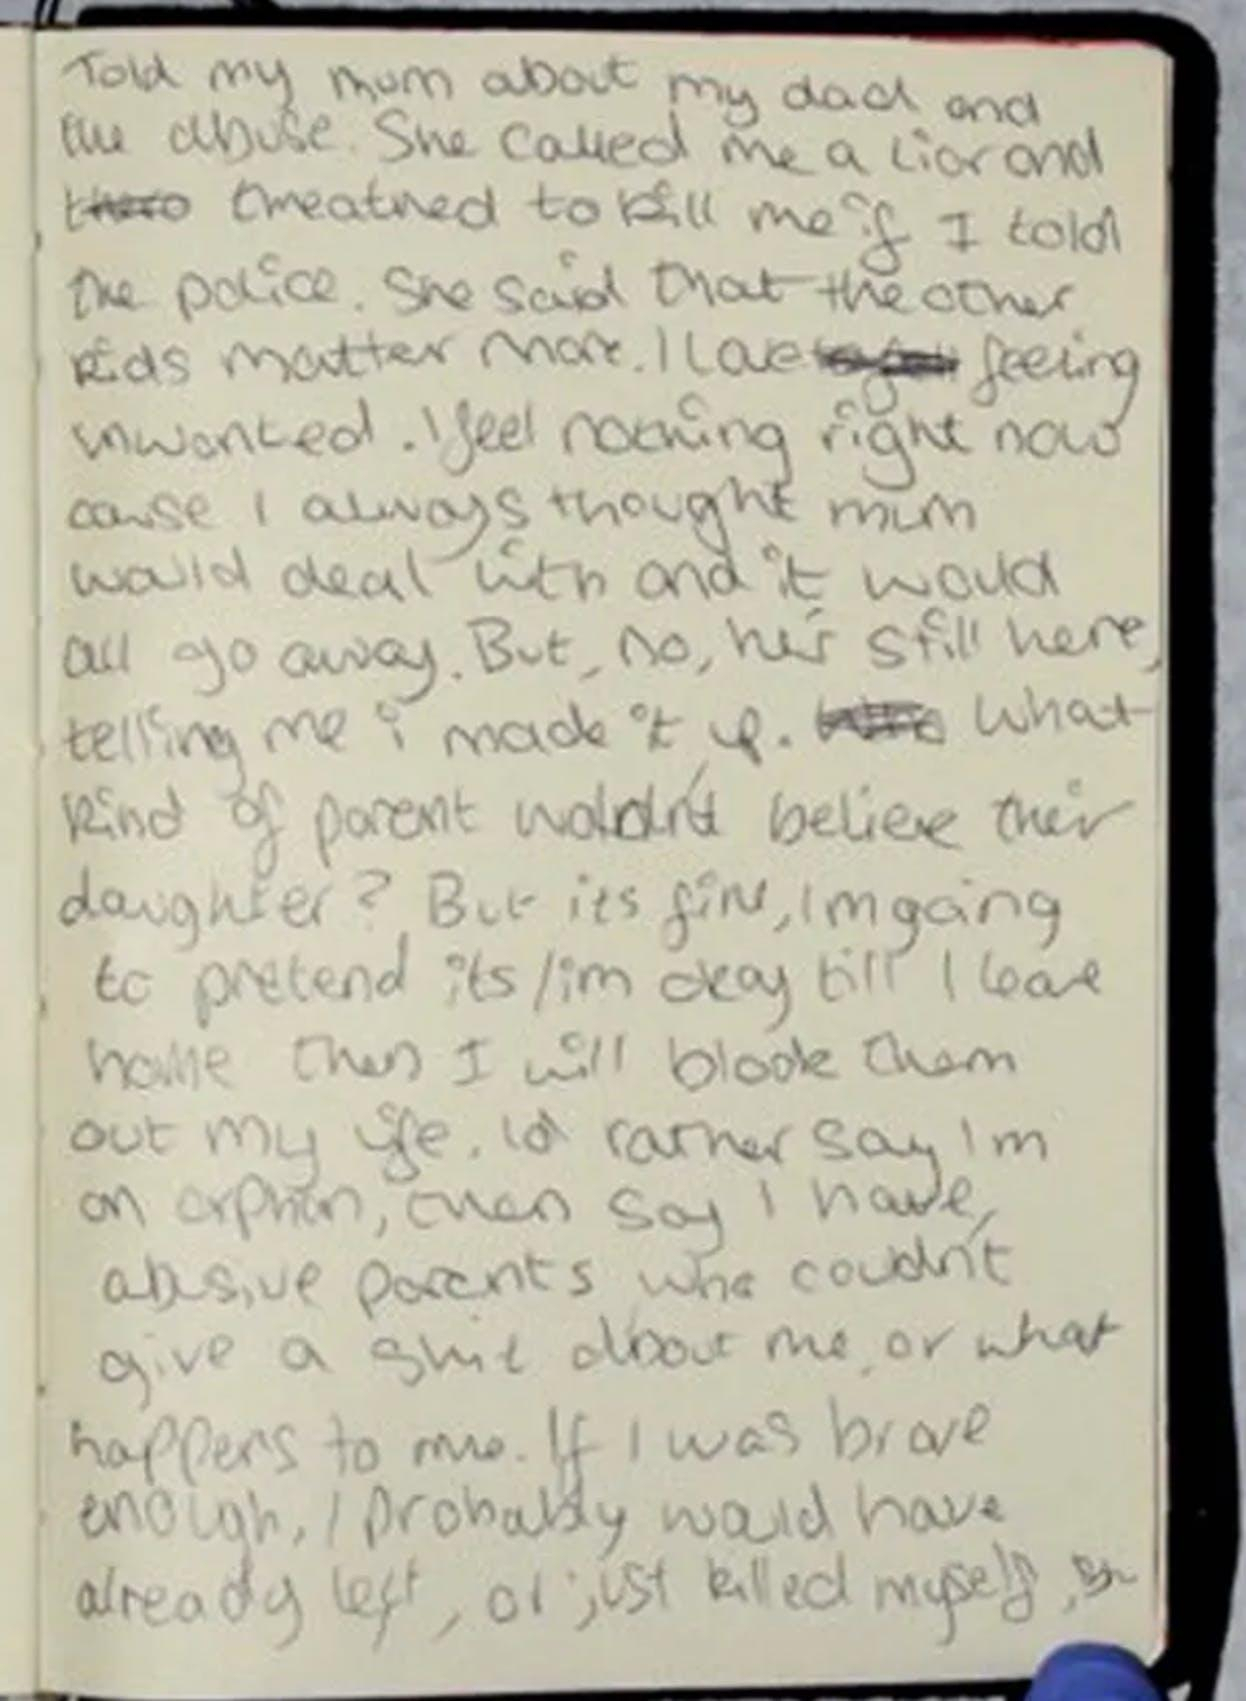 Told my mum about my dad and
the abuse. She called me a liar and
threatned to kill me if I told
the police. She said that the other
kids matter more. I love feeling
unwanted. I feel nothing right now
cause I always thought mum
would deal with and it would
all go away. But, no, he's still here,
telling me i made it up. What
kind of parent woldn't believe their
daughter? But its fine, Im going
to pretend its/im okay till I leave
home then I will block them
out my life. Id rather say I'm
an orphan, then say I have,
abusive parents who coudn't
give a shit about me, or what
happens to me. If I was brave
enough, I probably would have
already left, or just killed myself,